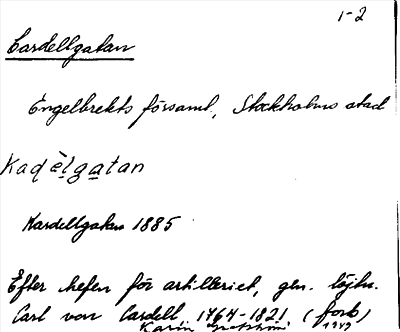 1-2
Cardellgatan
Engelbrekts församl, Stockholms stad
Kadèlgatan
Kardellgatan 1885
Efter chefen för artilleriet, gen. löjtn.
Carl von Cardell 1764-1821 (
Karin